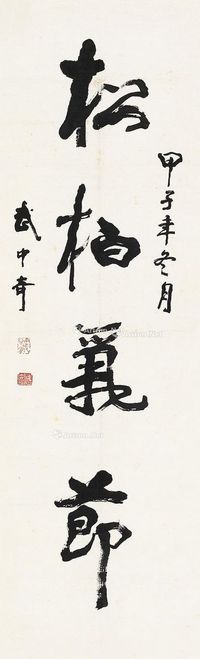 甲子年冬月
松柏義節
武中奇